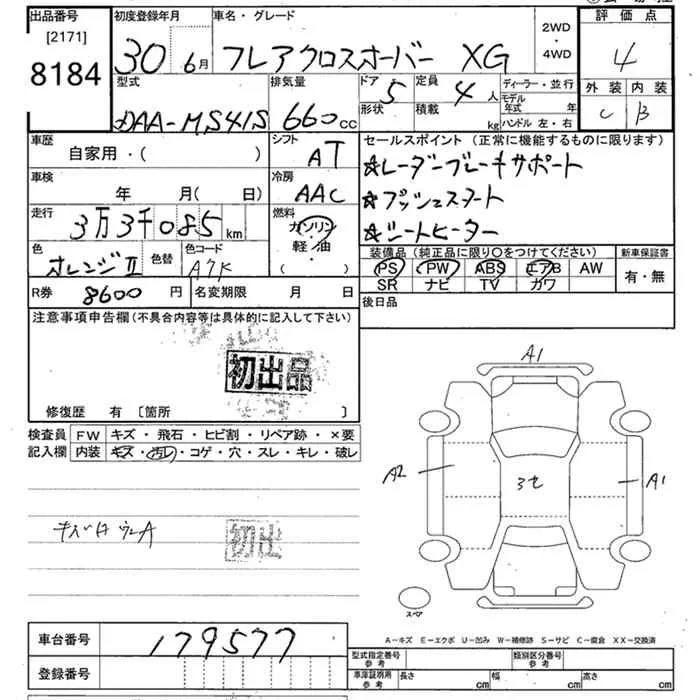 出品番号 初度登録年月 車名・グレード 2WD・4WD 評価点
[2171]
8184
30 6月 フレアクロスオーバー XG 4
型式 排気量 ドア 5 定員 4人 ディーラー・並行 外装 内装
DAA-MS41S 660cc 形状 積載 kg モデル年式 年 C B
ハンドル 左・右
車歴 シフト セールスポイント（正常に機能するものに限ります）
自家用・( ) AT ☆レーダーブレーキサポート
車検 冷房 ☆プッシュスタート
年 月( 日) AAC
走行 燃料 ☆シートヒーター
3万3千085km ガソリン
軽油
( )
色 色替 色コード 装備品（純正品に限り○をつけてください） 新車保証書
オレンジII A7K PS PW ABS エアB AW 有・無
SR ナビ TV カワ
R券 8600円 名変期限 月 日 後日品
注意事項申告欄(不具合内容等は具体的に記入して下さい)
初出品
修復歴 有 〔箇所 〕
検査員 FW キズ・飛石・ヒビ割・リペア跡・×要
記入欄 内装 キズ・汚レ・コゲ・穴・スレ・キレ・破レ
A1
A2
A1
初出
スペア
A-キズ E-エクボ U-凹み W-補修跡 S-サビ C-腐食 XX-交換済
車台番号 179577
登録番号
型式指定番号 参考 類別区分番号 参考
車庫証明用 参考 長さ cm 幅 cm 高さ cm